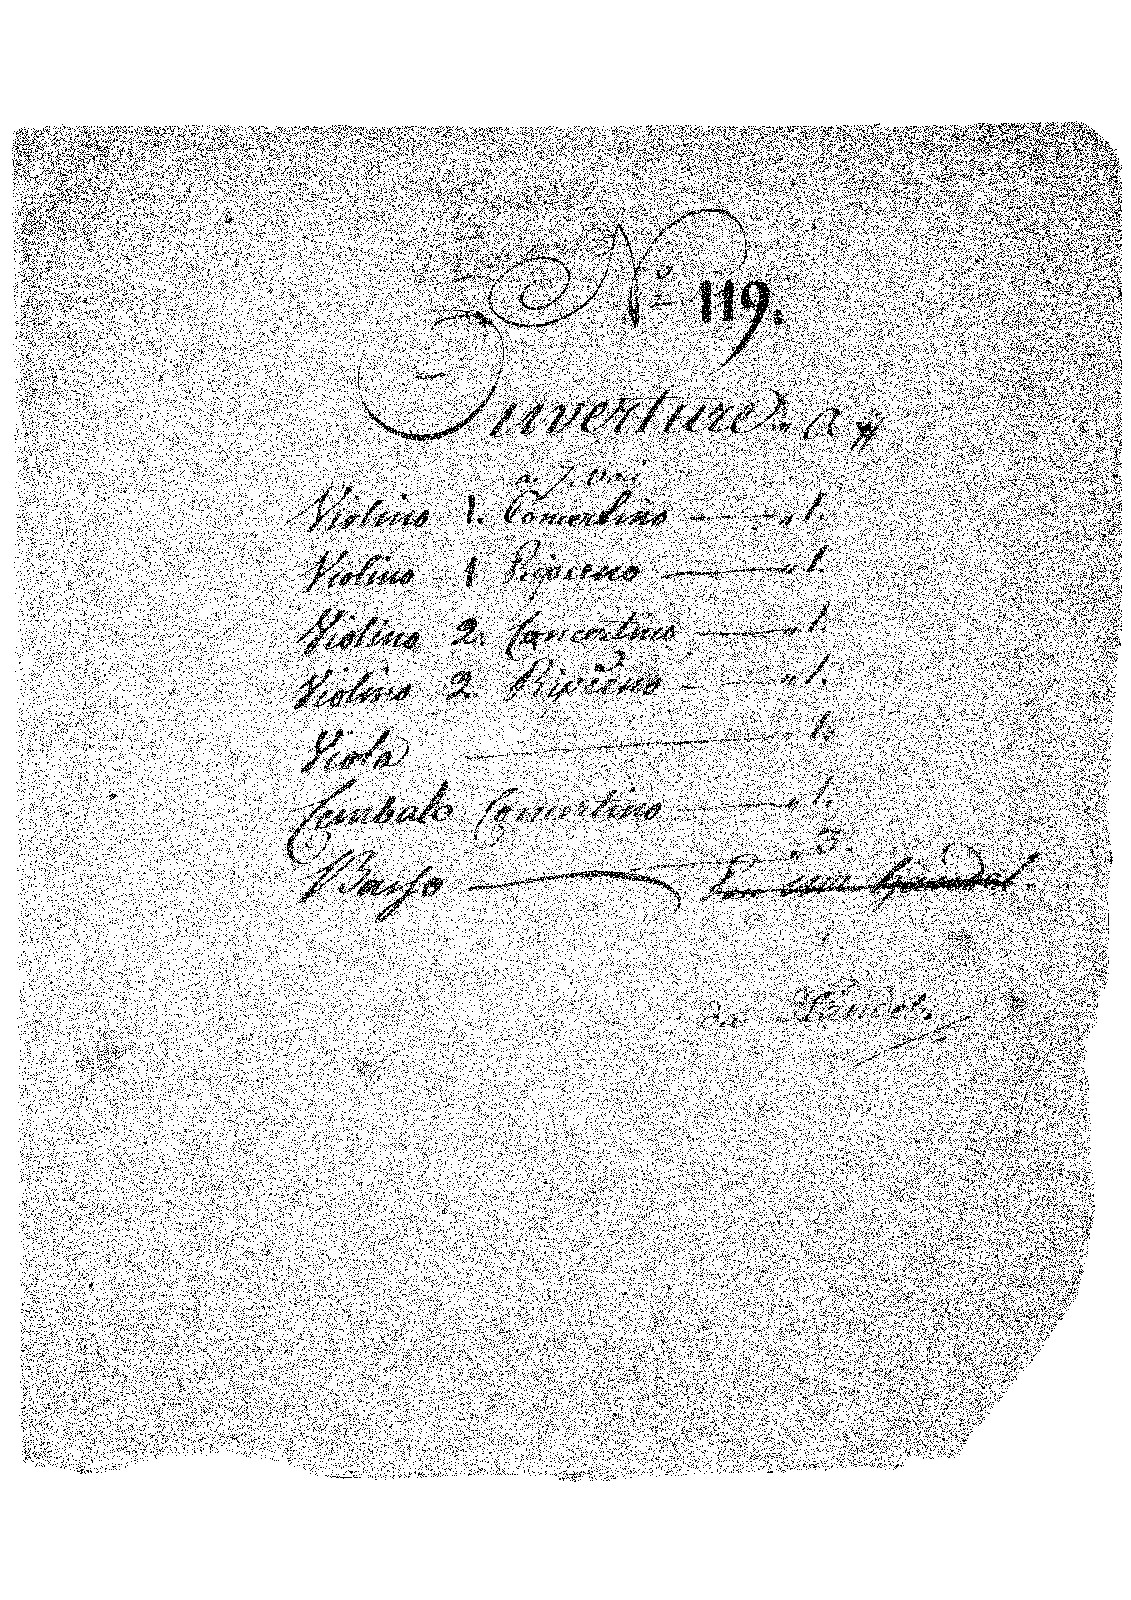 No 119.
Ouverture. a
Violino 1. Concertino — " 1.
Violino 1 Ripieno — " 1.
Violino 2. Concertino — " 1.
Violino 2. Ripieno — " 1.
Viola — 1.
Cembalo Concertino — " 1.
Basso — " 3.